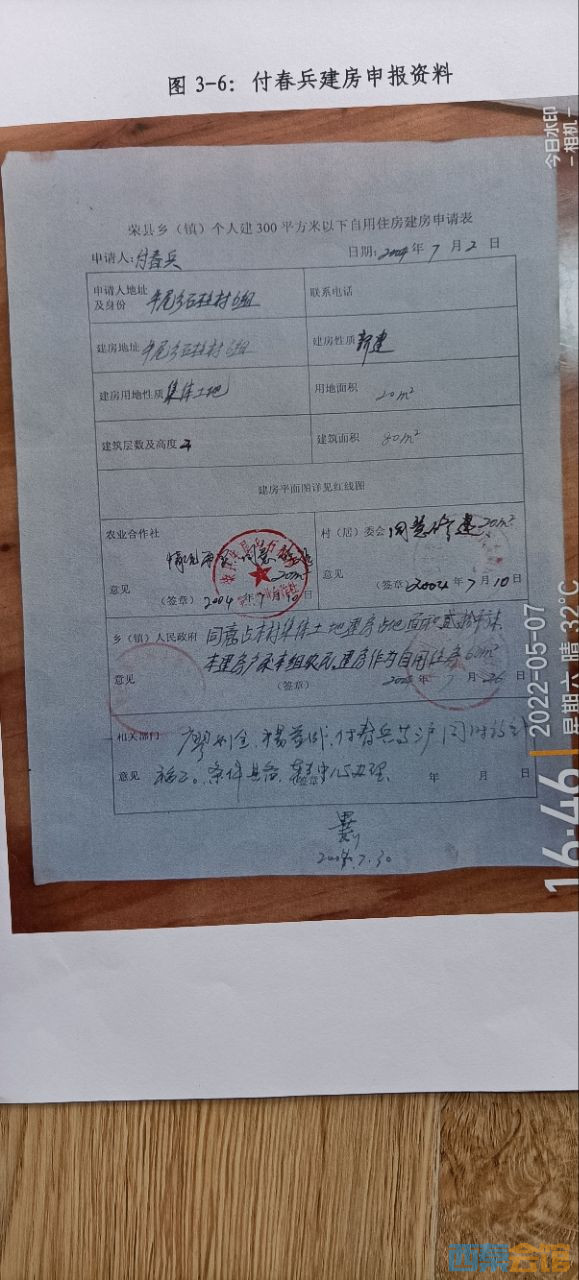 图 3-6：付春兵建房申报资料
荣县乡（镇）个人建300平方米以下自用住房建房申请表
申请人：付春兵 日期：2004年7月2日
申请人地址及身份 牛尾乡石柱村6组 联系电话
建房地址 牛尾乡石柱村6组 建房性质 新建
建房用地性质 集体土地 用地面积 20m²
建筑层数及高度 建筑面积 80m²
建房平面图详见红线图
农业合作社 村（居）委会 同意修建20m²
情况 同意 20m²
意见 意见
（签章）2004年7月10日 （签章）2004年7月10日
乡（镇）人民政府 同意占本村集体土地建房占地面积贰拾平米
本组农民，建房作为自用住房
意见 （签章） 7月26日
相关部门 付春兵
意见 条件具备 办理 年 月 日
7.30
今日水印
-相机-
16:46
2022-05-07
星期六 晴 32℃
西秦会馆